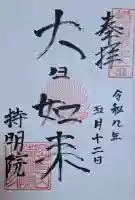 奉拝
大日如来
令和九年
五月十二日
持明院